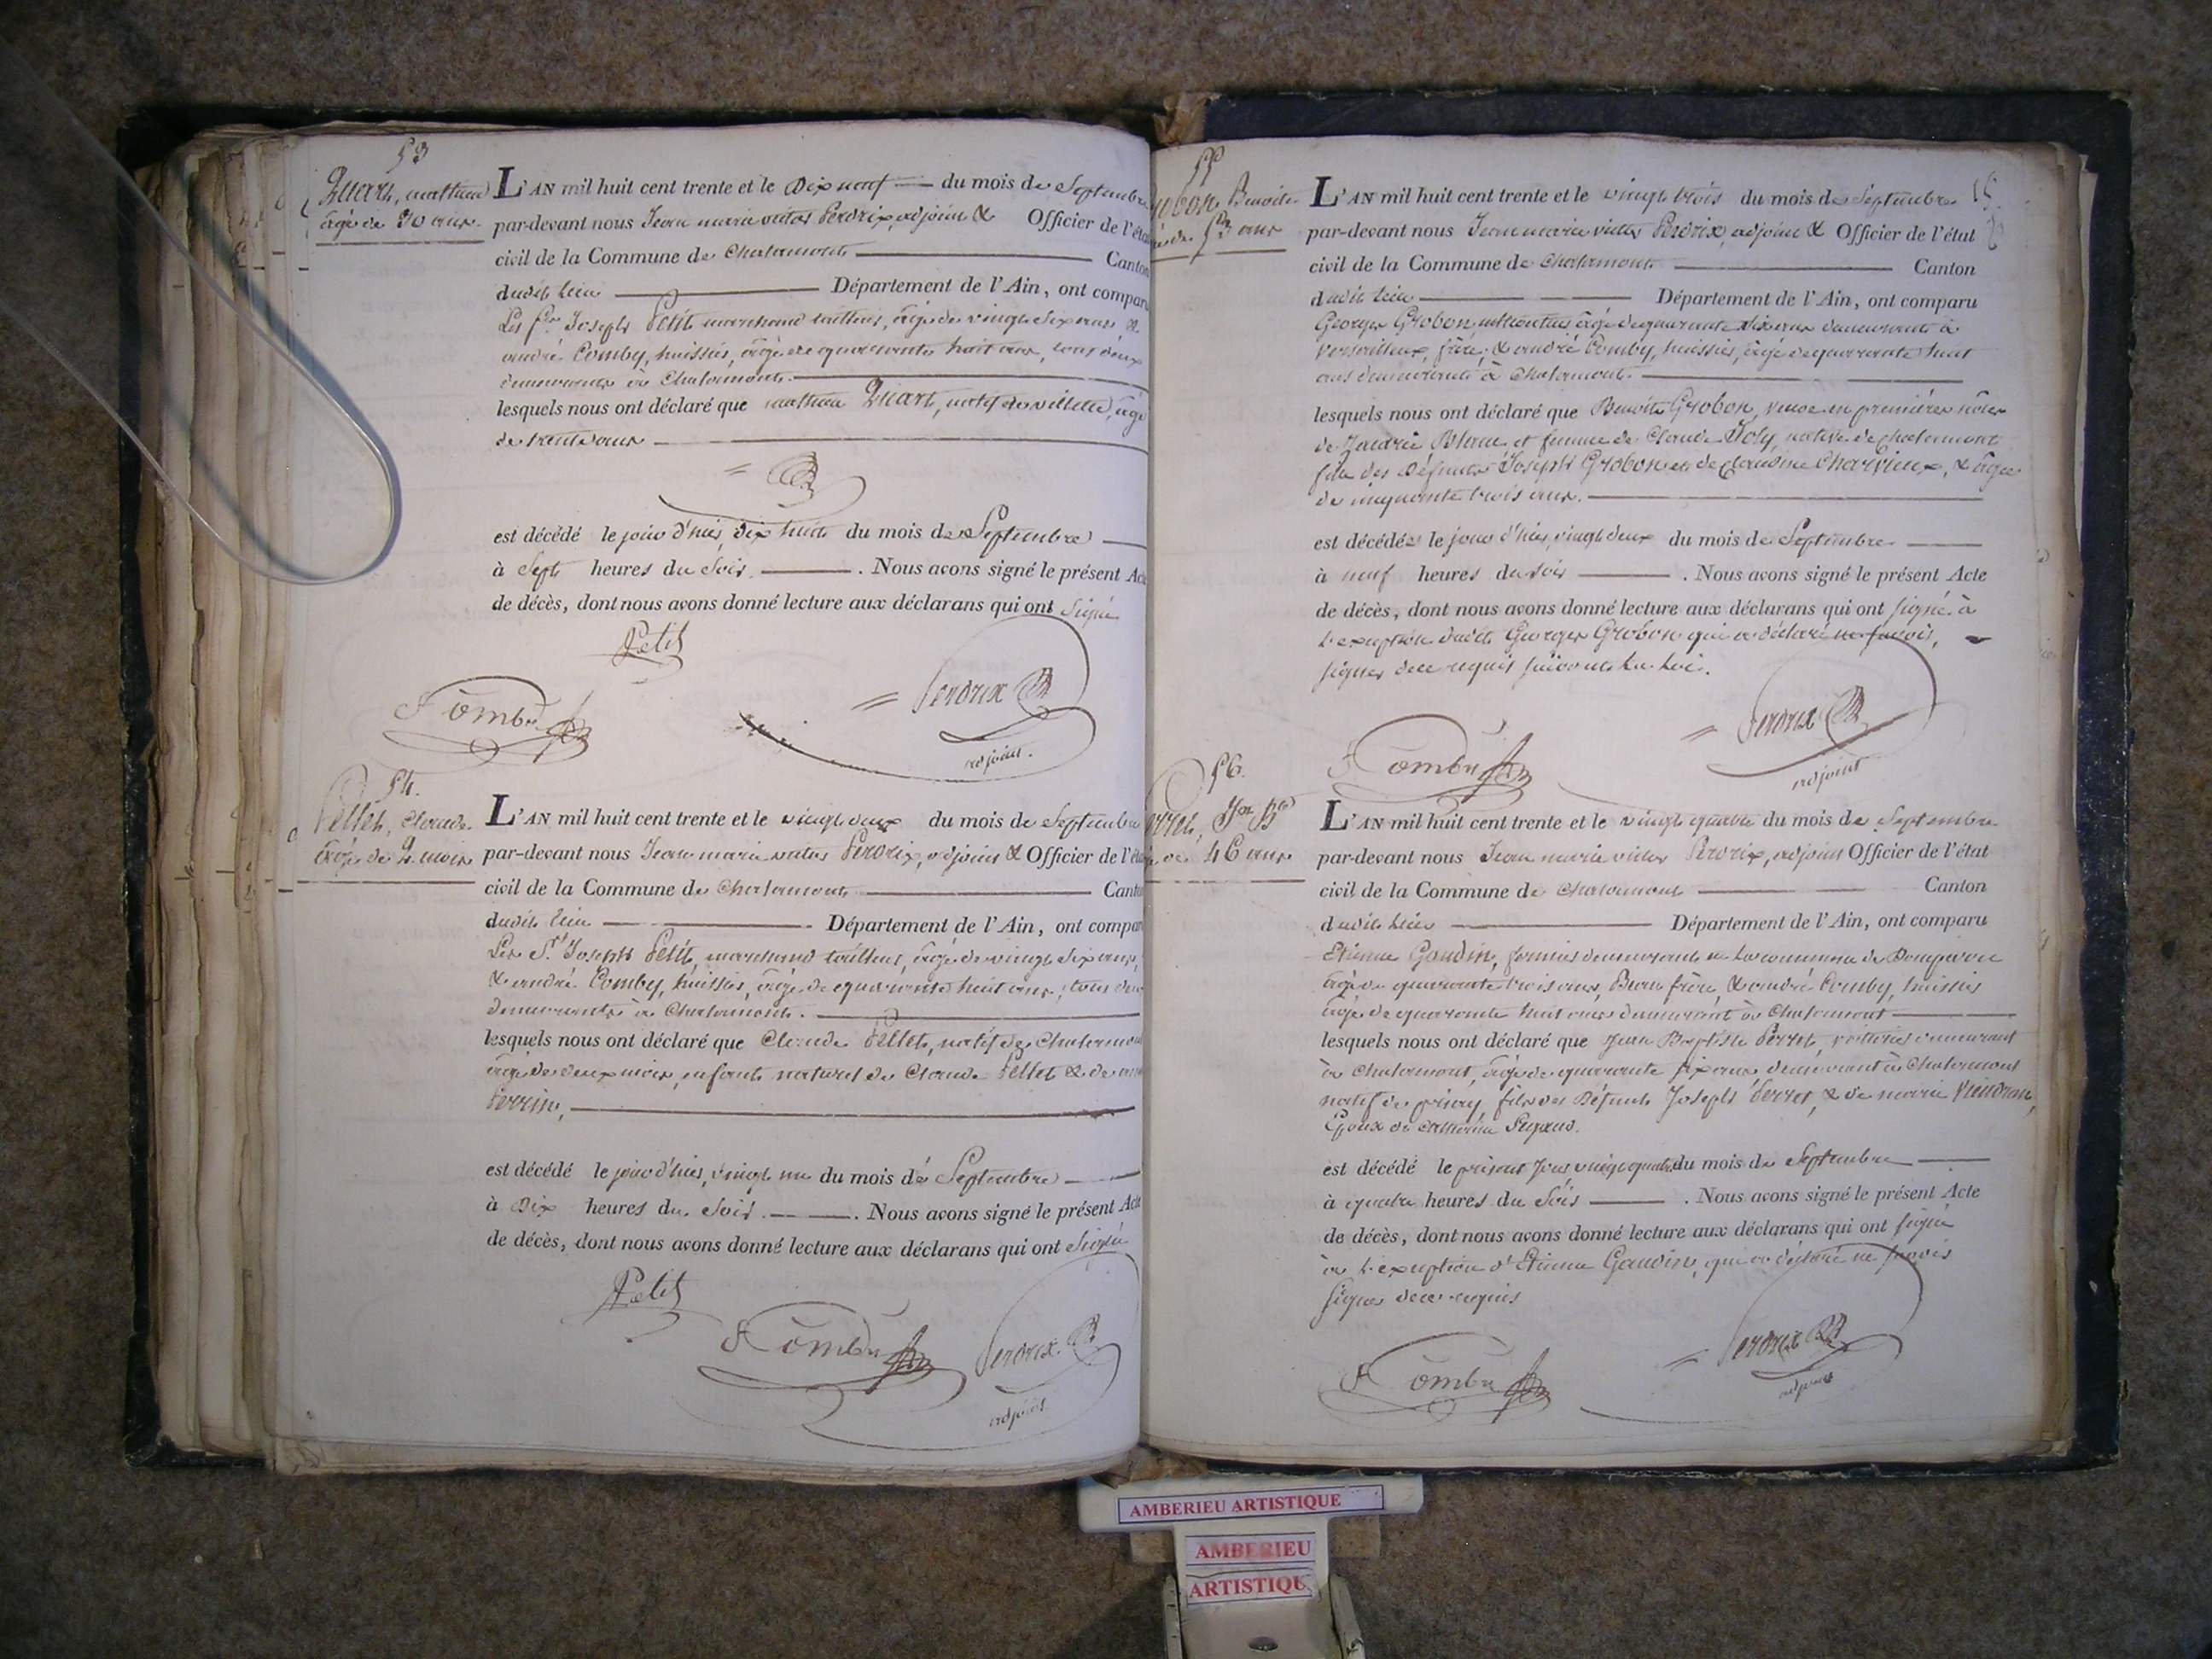 53
Quart, mathieu
âgé de 30 ans.
L'AN mil huit cent trente et le Dix neuf du mois de Septembre
par-devant nous Jean marie victor Perdrix, adjoint & Officier de l'état
civil de la Commune de Chalamont Canton
dudit lieu Département de l'Ain, ont comparu
Les Srs Joseph Petit marchand tailleur, âgé de vingt six ans &
andré Comby, huissier, âgé de quarante huit ans, tous deux
demeurants à Chalamont.
lesquels nous ont déclaré que mathieu Quart, natif de villette, âgé
de trente ans
est décédé le jour d'hier, dix huit du mois de Septembre
à Sept heures du Soir. Nous avons signé le présent Acte
de décès, dont nous avons donné lecture aux déclarans qui ont Signé
Petit
Comby
Perdrix
adjoint.
54.
Pellet, Claude
âgé de 2 mois
L'AN mil huit cent trente et le vingt deux du mois de Septembre
par-devant nous Jean marie victor Perdrix, adjoint & Officier de l'état
civil de la Commune de Chalamont Canton
dudit lieu Département de l'Ain, ont comparu
Les Srs Joseph Petit, marchand tailleur, âgé de vingt six ans,
& andré Comby, huissier, âgé de quarante huit ans, tous deux
demeurants à Chalamont.
lesquels nous ont déclaré que Claude Pellet, natif de Chalamont
âgé de deux mois, enfant naturel de Claude Pellet & de
Perrin,
est décédé le jour d'hier, vingt un du mois de Septembre
à Dix heures du Soir. Nous avons signé le présent Acte
de décès, dont nous avons donné lecture aux déclarans qui ont Signé
Petit
Comby
Perdrix
adjoint
55
Grobon, Benoite
âgée de 53 ans
15
L'AN mil huit cent trente et le vingt trois du mois de Septembre
par-devant nous Jean marie victor Perdrix, adjoint & Officier de l'état
civil de la Commune de Chalamont Canton
dudit lieu Département de l'Ain, ont comparu
Georges Grobon âgé de quarante six ans demeurant à
Versailleux, frère, & andré Comby, huissier, âgé de quarante huit
ans demeurant à Chalamont.
lesquels nous ont déclaré que Benoite Grobon, veuve en premières noces
de Blanc et femme de Claude Joly, native de Chalamont
fille des Défunts Joseph Grobon et de Claudine Charvieux, & âgée
de cinquante trois ans.
est décédée le jour d'hier, vingt deux du mois de Septembre
à neuf heures du soir. Nous avons signé le présent Acte
de décès, dont nous avons donné lecture aux déclarans qui ont signé à
l'exception dudit Georges Grobon qui a déclaré ne savoir,
signer de ce requis suivant la Loi.
Comby
Perdrix
adjoint
56.
Perret, Jean Bte
âgé de 46 ans
L'AN mil huit cent trente et le vingt quatre du mois de Septembre
par-devant nous Jean marie victor Perdrix, adjoint Officier de l'état
civil de la Commune de Chalamont Canton
dudit lieu Département de l'Ain, ont comparu
Etienne Gaudin, fermier demeurant en la commune de Dompierre
âgé de quarante trois ans, Beau frère, & andré Comby, huissier
âgé de quarante huit ans demeurant à Chalamont
lesquels nous ont déclaré que Jean Baptiste Perret, voiturier demeurant
à Chalamont, âgé de quarante six ans demeurant à Chalamont
natif de prisay, fils des Défunts Joseph Perret, & de marie
Epoux de Catherine
est décédé le présent jour, vingt quatre du mois de Septembre
à quatre heures du Soir. Nous avons signé le présent Acte
de décès, dont nous avons donné lecture aux déclarans qui ont signé
à l'exception d'Etienne Gaudin, qui a déclaré ne savoir
signer de ce requis
Comby
Perdrix
adjoint
AMBERIEU ARTISTIQUE
AMBERIEU
ARTISTIQU